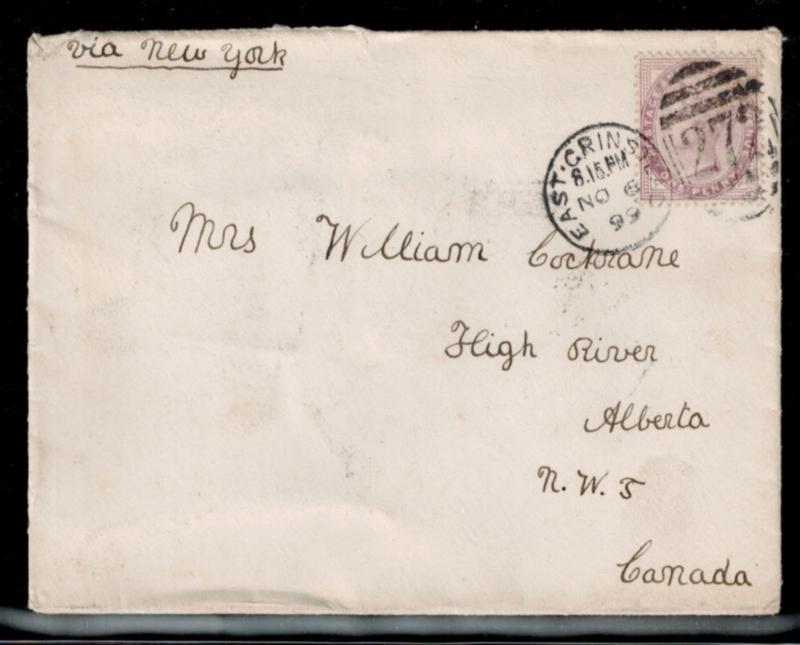 via New York
EAST·GRINST
8.15.PM
NO 6
99
27
POSTAGE
ONE PENNY
Mrs William Cochrane
High River
Alberta
N.W.T
Canada